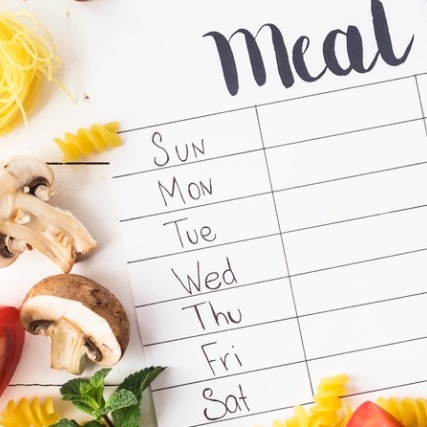 Meal
Sun
Mon
Tue
Wed
Thu
Fri
Sat